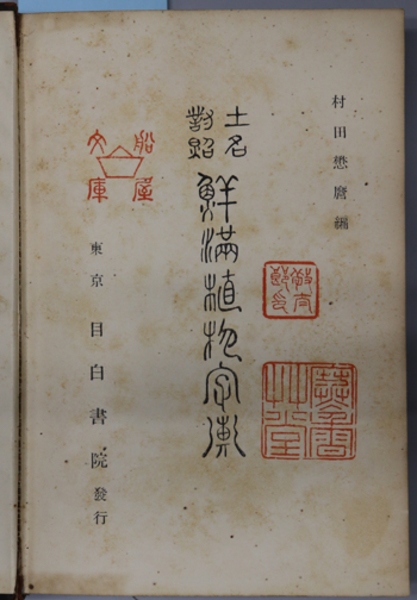 村田懋麿編
土名
対照
鮮満植物字彙
東京 目白書院発行
船屋
文庫